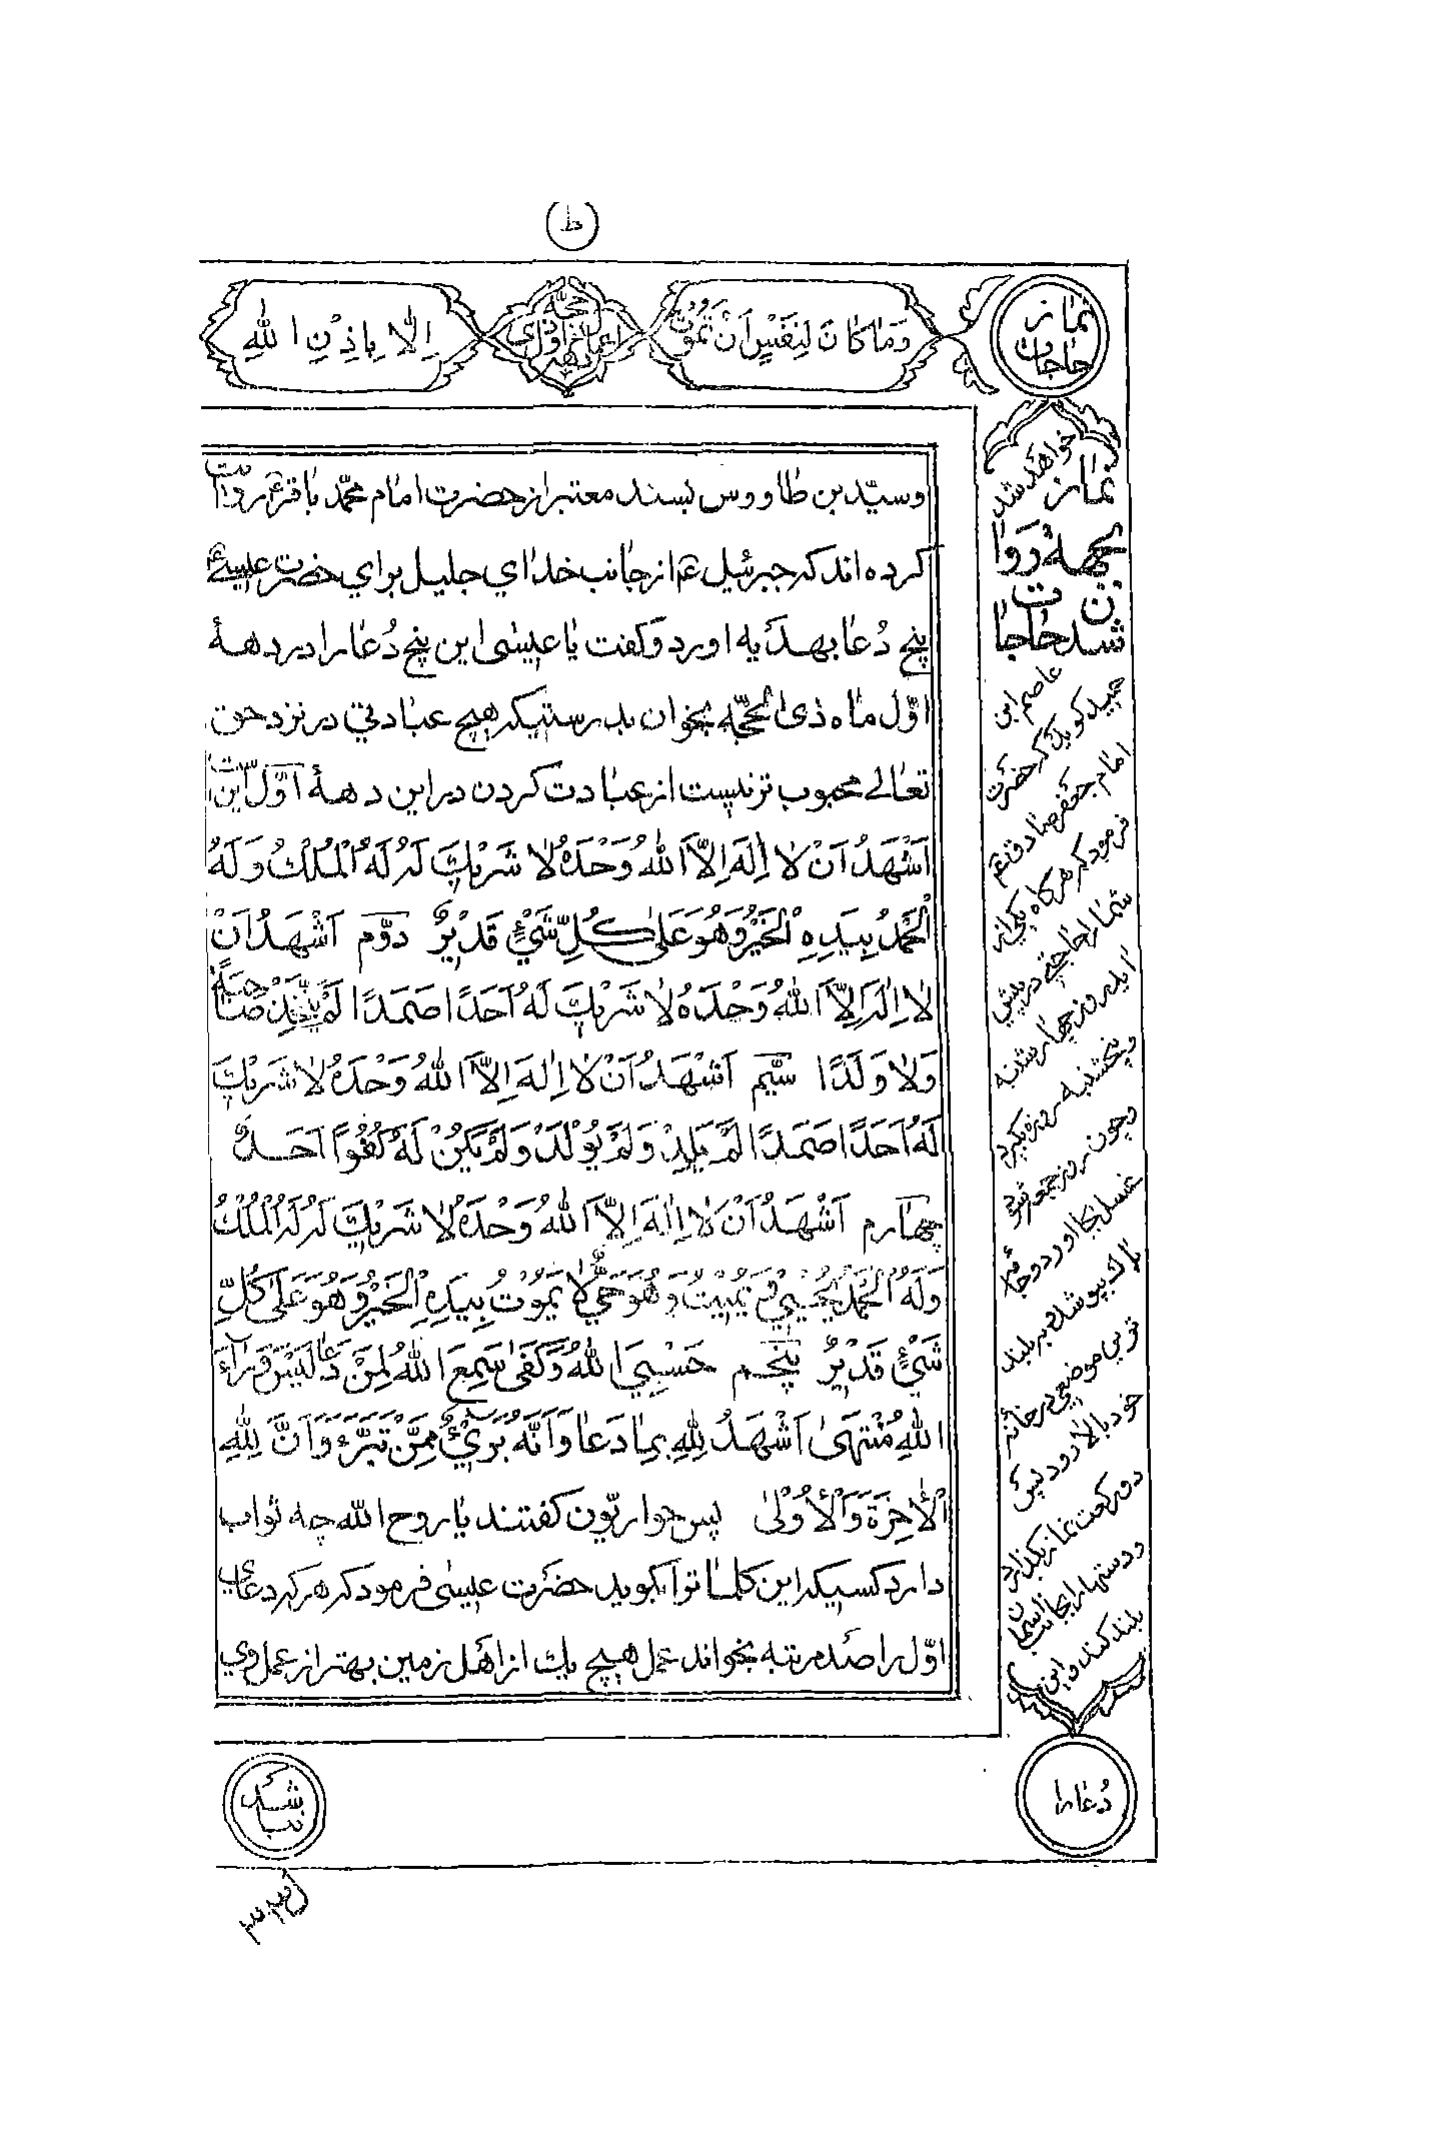 ط
وَمَا كَانَ لِنَفْسٍ اَنْ تَمُوْتَ
اعمال دهه اوّل ذی الحجّه
اِلَّا بِاِذْنِ اللهِ
نماز حاجات
وسیّد بن طاووس بسند معتبر از حضرت امام محمّد باقر ع روایت
کرده اند که جبرئیل ع از جانب خدای جلیل برای حضرت عیسی ع
پنج دُعا بهدیه اورد و کفت یا عیسی این پنج دُعا را در دههٔ
اوّل ماه ذی الحجّه بخوان بدرستیکه هیچ عبادتی در نزد حق
تعالے محبوب تر نیست از عبادت کردن در این دههٔ اوّل این است
اَشْهَدُ اَنْ لَا اِلَهَ اِلَّا اللهُ وَحْدَهُ لَا شَرِيْكَ لَهُ لَهُ الْمُلْكُ وَلَهُ
الْحَمْدُ بِيَدِهِ الْخَيْرُ وَهُوَ عَلَى كُلِّ شَيْءٍ قَدِيْرٌ دوّم اَشْهَدُ اَنْ
لَا اِلَهَ اِلَّا اللهُ وَحْدَهُ لَا شَرِيْكَ لَهُ اَحَدًا صَمَدًا لَمْ يَتَّخِذْ صَاحِبَةً
وَلَا وَلَدًا سیّم اَشْهَدُ اَنْ لَا اِلَهَ اِلَّا اللهُ وَحْدَهُ لَا شَرِيْكَ
لَهُ اَحَدًا صَمَدًا لَمْ يَلِدْ وَلَمْ يُوْلَدْ وَلَمْ يَكُنْ لَهُ كُفُوًا اَحَدٌ
چهارم اَشْهَدُ اَنْ لَا اِلَهَ اِلَّا اللهُ وَحْدَهُ لَا شَرِيْكَ لَهُ لَهُ الْمُلْكُ
وَلَهُ الْحَمْدُ يُحْيِيْ وَيُمِيْتُ وَهُوَ حَيٌّ لَا يَمُوْتُ بِيَدِهِ الْخَيْرُ وَهُوَ عَلَى كُلِّ
شَيْءٍ قَدِيْرٌ پنجم حَسْبِيَ اللهُ وَكَفَى سَمِعَ اللهُ لِمَنْ دَعَا لَيْسَ وَرَاءَ
اللهِ مُنْتَهَى اَشْهَدُ لِلّٰهِ بِمَا دَعَا وَاَنَّهُ بَرِيْءٌ مِمَّنْ تَبَرَّءَ وَاَنَّ لِلّٰهِ
الْاٰخِرَةَ وَالْاُوْلَى پس حواریّون کفتند یا روح الله چه ثواب
دارد کسیکه این کلمات را بکوید حضرت عیسی فرمود که هر که دعای
اوّل را صد مرتبه بخواند عمل هیچ یك از اهل زمین بهتر از عمل وی
نباشد
خواهد شد
نماز
بجههٔ روا
شدن حاجات
عاصم ابن
حمید کوید که حضرت
امام جعفر صادق ع
فرمود که هرکاه یکی از
شما را حاجتی در پیش
اید روز چهارشنبه
و پنجشنبه روزه بکیرد
و چون روز جمعه شود
غسل بجا اورد و جامه
پاك بپوشد بر بلند
ترین موضعی در خانه
خود بالا رود پس
دو رکعت نماز بکذارد
و دستها را بجانب آسمان
بلند کند و این
دُعا را